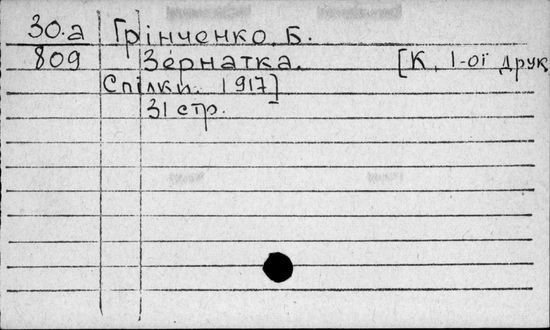 30.a Грінченко, Б.
809 Зернатка. [К, 1-ої друк
Спілки. 1917]
31 стр.